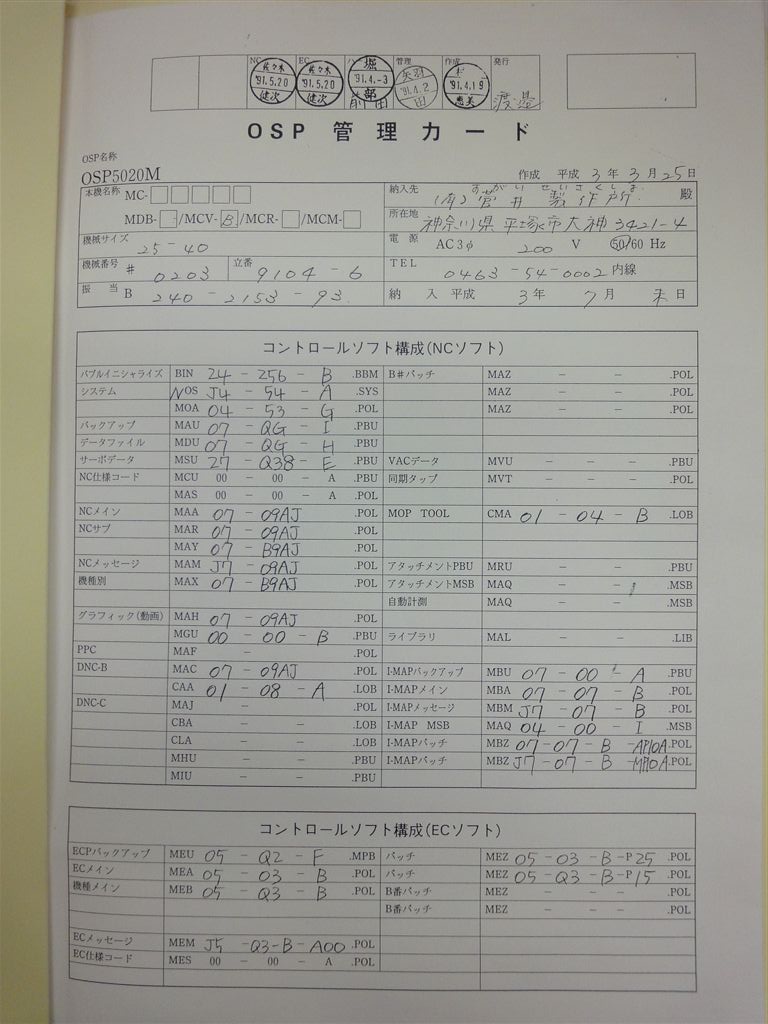 NC EC ハード 管理 作成 発行
佐々木 '91.5.20 健次
佐々木 '91.5.20 健次
堀 '91.4.-3 部
'91.4.2
'91.4.19 恵美
前田
渡邉
OSP 管理カード
OSP名称
OSP5020M
作成 平成 3年 3月 25日
本機名称 MC-
MDB- /MCV-B/MCR- /MCM-
納入先 (有)菅井製作所 殿
すがい せいさくしょ
所在地 神奈川県平塚市大神3421-4
機械サイズ 25-40
電源 AC3φ 200 V 50/60 Hz
機械番号 # 0203 立番 9104-6
TEL 0463-54-0002 内線
振当 B 240-2153-93
納入 平成 3年 7月 末日
コントロールソフト構成(NCソフト)
バブルイニシャライズ BIN 24 - 256 - B .BBM B#パッチ MAZ - - .POL
システム NOS J4 - 54 - A .SYS MAZ - - .POL
MOA 04 - 53 - G .POL MAZ - - .POL
バックアップ MAU 07 - QG - I .PBU
データファイル MDU 07 - QG - H .PBU
サーボデータ MSU 27 - Q38 - E .PBU VACデータ MVU - - - .PBU
NC仕様コード MCU 00 - 00 - A .PBU 同期タップ MVT - - - .POL
MAS 00 - 00 - A .POL
NCメイン MAA 07 - 09AJ .POL MOP TOOL CMA 01 - 04 - B .LOB
NCサブ MAR 07 - 09AJ .POL
MAY 07 - B9AJ .POL
NCメッセージ MAM J7 - 09AJ .POL アタッチメントPBU MRU - - .PBU
機種別 MAX 07 - B9AJ .POL アタッチメントMSB MAQ - - .MSB
自動計測 MAQ - - .MSB
グラフィック(動画) MAH 07 - 09AJ .POL
MGU 00 - 00 - B .PBU ライブラリ MAL - - .LIB
PPC MAF - .POL
DNC-B MAC 07 - 09AJ .POL I-MAPバックアップ MBU 07 - 00 - A .PBU
CAA 01 - 08 - A .LOB I-MAPメイン MBA 07 - 07 - B .POL
DNC-C MAJ - .POL I-MAPメッセージ MBM J7 - 07 - B .POL
CBA - - .LOB I-MAP MSB MAQ 04 - 00 - I .MSB
CLA - - .LOB I-MAPパッチ MBZ 07 - 07 - B -AP10A .POL
MHU - - .PBU I-MAPパッチ MBZ J7 - 07 - B -MP10A .POL
MIU - - .PBU
コントロールソフト構成(ECソフト)
ECPバックアップ MEU 05 - Q2 - F .MPB パッチ MEZ 05 - 03 - B - P25 .POL
ECメイン MEA 05 - 03 - B .POL パッチ MEZ 05 - Q3 - B - P15 .POL
機種メイン MEB 05 - Q3 - B .POL B番パッチ MEZ - - - .POL
B番パッチ MEZ - - - .POL
ECメッセージ MEM J5 - Q3 - B - A00 .POL
EC仕様コード MES 00 - 00 - A .POL